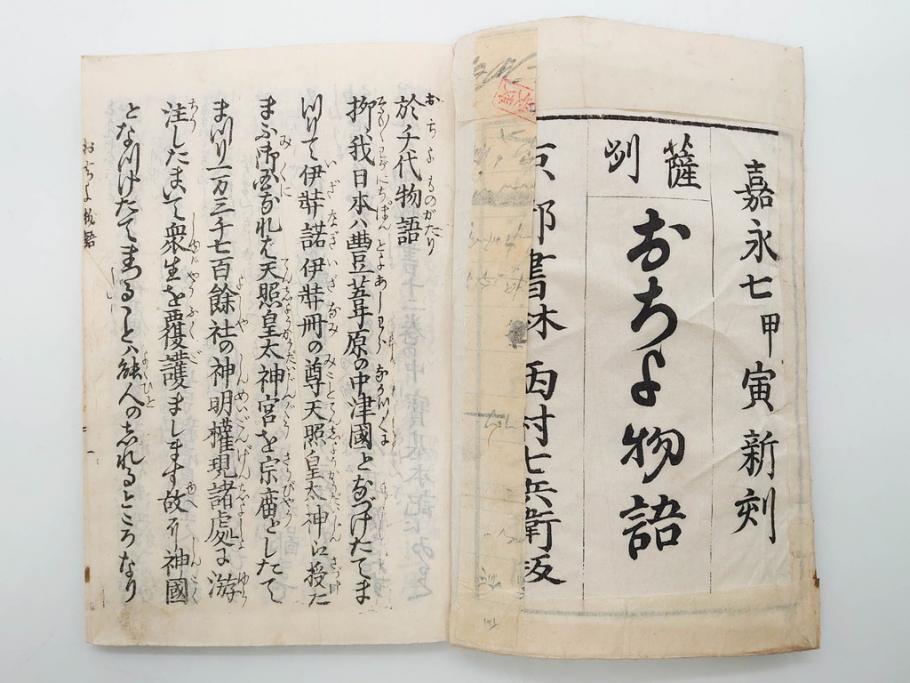 嘉永七甲寅新刻
薩州
おちよ物語
京都書林 西村七兵衛板
於千代物語
抑我日本ハ豊葦原の中津國となづけたてま
つりて伊弉諾伊弉冊の尊天照皇太神に授た
まふ御国なれは天照皇太神宮を宗庿としたて
まつり一万三千七百餘社の神明權現諸處に游
注したまいて衆生を覆護まします故に神國
となつけたてまつることハ能人のしれるところなり
おちよ物語